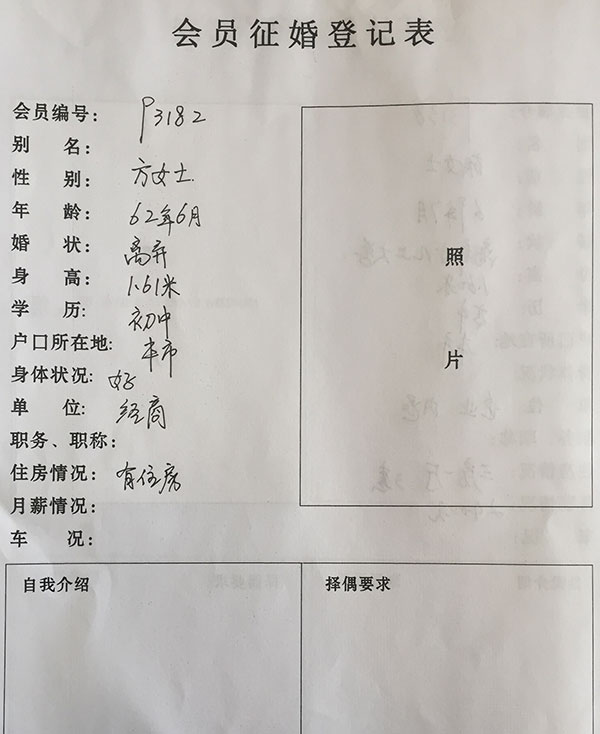 会员征婚登记表
会员编号: P3182
别 名:
性 别: 方女士
年 龄: 62年6月
婚 状: 离异
身 高: 1.61米
学 历: 初中
户口所在地: 本市
身体状况: 好
单 位: 经商
职务、职称:
住房情况: 有住房
月薪情况:
车 况:
照
片
自我介绍 择偶要求